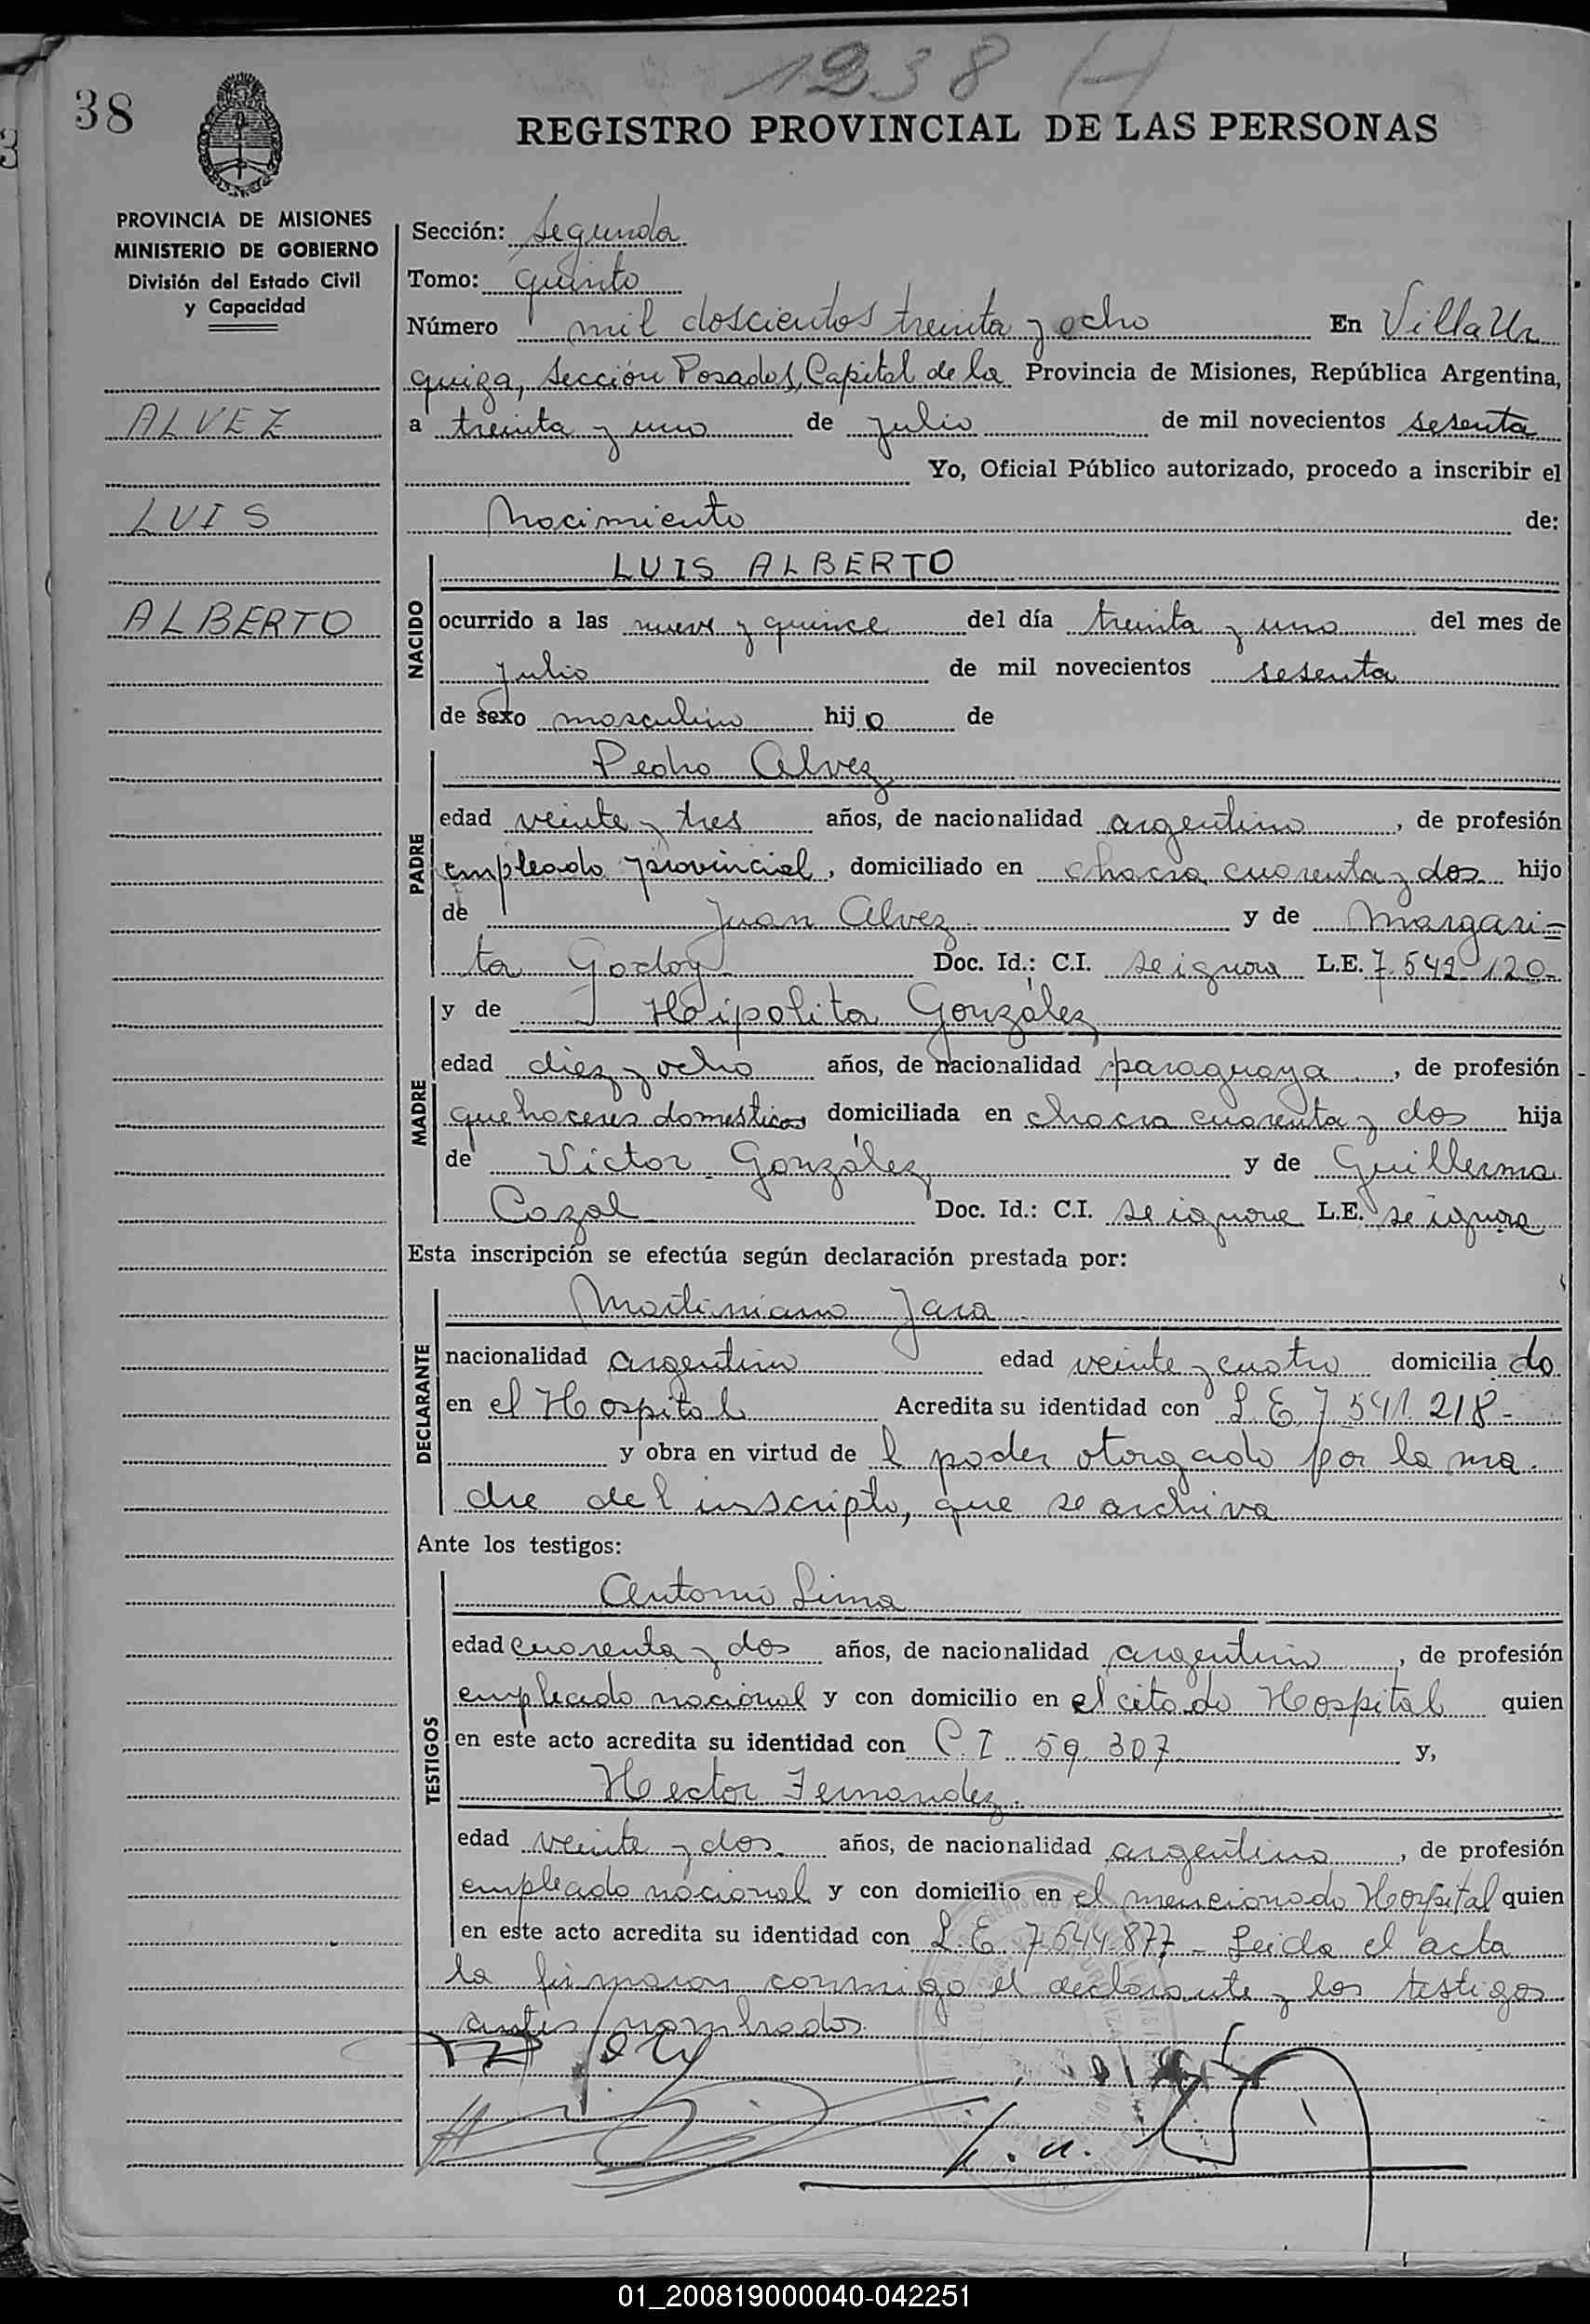 1238
38
REGISTRO PROVINCIAL DE LAS PERSONAS
PROVINCIA DE MISIONES
MINISTERIO DE GOBIERNO
División del Estado Civil
y Capacidad
ALVEZ
LUIS
ALBERTO
Sección: Segunda
Tomo: quinto
Número mil doscientos treinta y ocho En Villa Ur
quiza, Sección Posadas, Capital de la Provincia de Misiones, República Argentina,
a treinta y uno de julio de mil novecientos sesenta
Yo, Oficial Público autorizado, procedo a inscribir el
Nacimiento de:
NACIDO
LUIS ALBERTO
ocurrido a las nueve y quince del día treinta y uno del mes de
julio de mil novecientos sesenta
de sexo masculino hijo de
PADRE
Pedro Alvez
edad veinte y tres años, de nacionalidad argentino, de profesión
empleado provincial, domiciliado en chacra cuarenta y dos hijo
de Juan Alvez y de Margari=
ta Godoy Doc. Id.: C.I. se ignora L.E. 7.542.120-
MADRE
y de Hipolita González
edad diez y ocho años, de nacionalidad paraguaya, de profesión
quehaceres domesticos domiciliada en chacra cuarenta y dos hija
de Victor González y de Guillerma
Cazal Doc. Id.: C.I. se ignora L.E. se ignora
Esta inscripción se efectúa según declaración prestada por:
DECLARANTE
Martiniano Jara
nacionalidad argentino edad veinte y cuatro domiciliado
en el Hospital Acredita su identidad con L.E. 7.541.218-
y obra en virtud del poder otorgado por la ma-
dre del inscripto, que se archiva
Ante los testigos:
TESTIGOS
Antonio Lima
edad cuarenta y dos años, de nacionalidad argentino, de profesión
empleado nacional y con domicilio en el citado Hospital quien
en este acto acredita su identidad con C.I. 59.307 y,
Hector Fernandez.
edad veinte y dos años, de nacionalidad argentino, de profesión
empleado nacional y con domicilio en el mencionado Hospital quien
en este acto acredita su identidad con L.E. 7.544.877- Leida el acta
la firmaron conmigo el declarante y los testigos
antes nombrados.
01_200819000040-042251